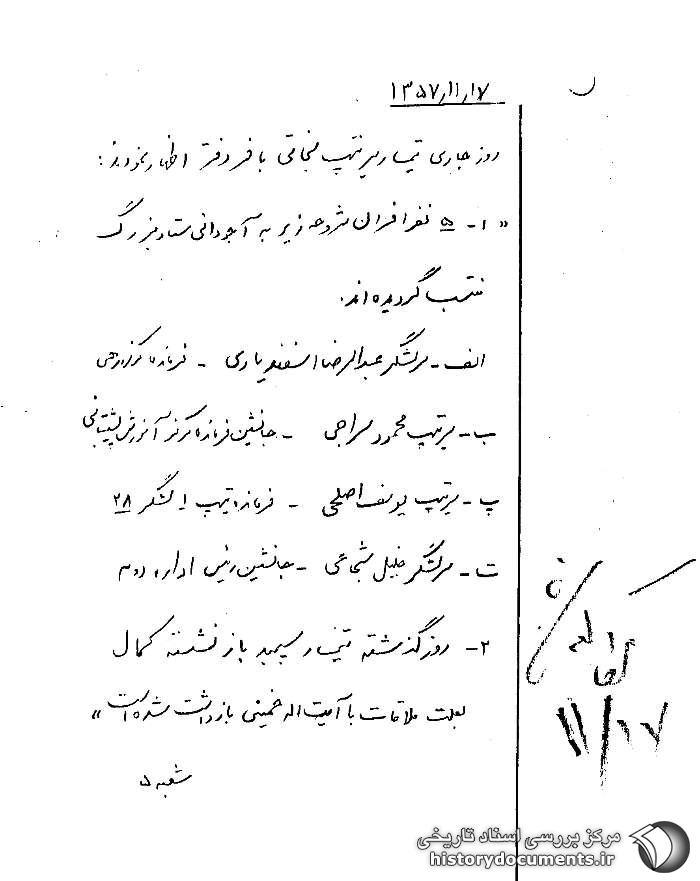 ۱۳۵۷ر۱۱ر۱۷
روز جاری تیمسار سرتیپ نجاتی با فر دفتر اظهار نمودند:
«۱- ۵ نفر افسران مشروحه زیر به آجودانی ستاد بزرگ
منتسب گردیده‌اند.
الف- سرلشگر عبدالرضا اسفندیاری - فرمانده مرکز زرهی
ب- سرتیپ محمود سراجی - جانشین فرمانده مرکز آموزش پشتیبانی
پ- سرتیپ یوسف اصلحی - فرمانده تیپ ۱ لشگر ۲۸
ت- سرلشگر خلیل شجاعی - جانشین رئیس اداره دوم
۲- روز گذشته تیمسار سپهبد بازنشسته کمال
بعلت ملاقات با آیت‌اله خمینی بازداشت شده است»
شعبه ۵
۱۱/۱۷
مرکز بررسی اسناد تاریخی
historydocuments.ir